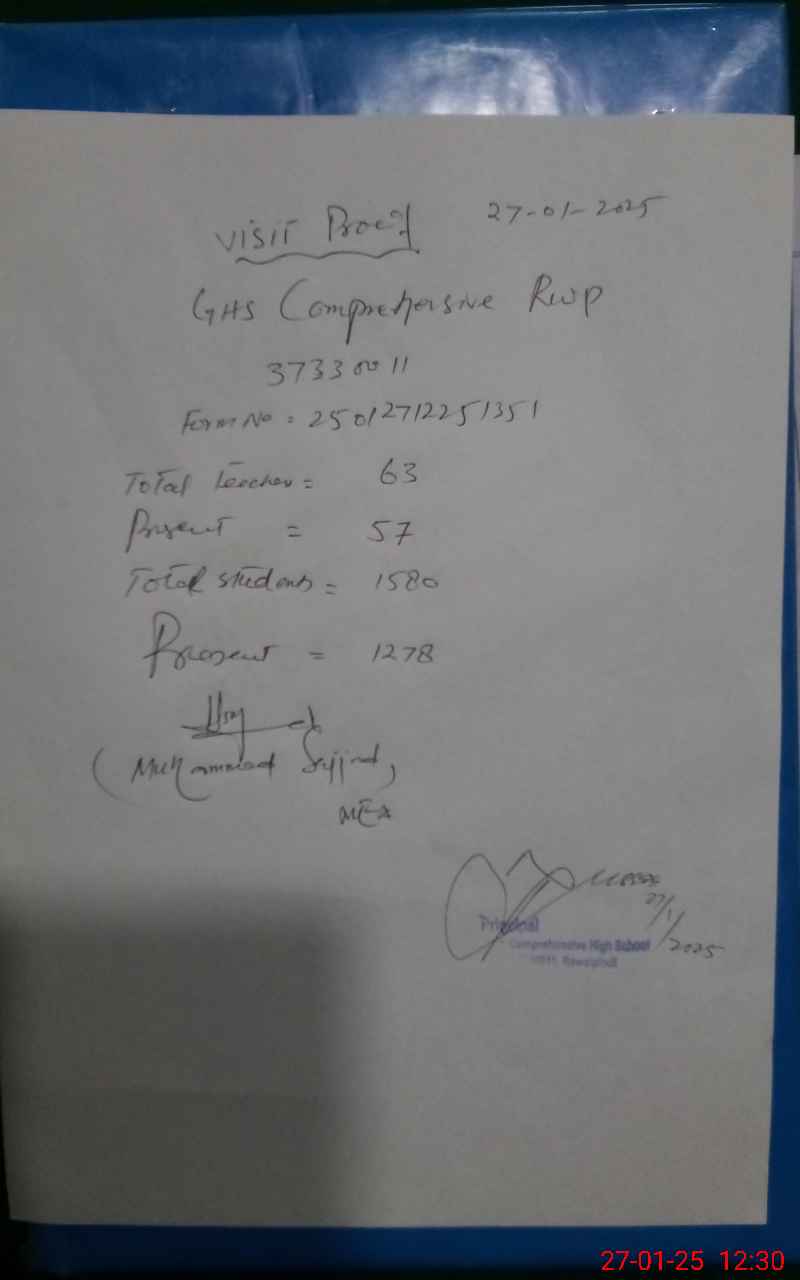 Visit Proof 27-01-2025
GHS Comprehensive Rwp
37330011
Form No = 25012712251351
Total teacher = 63
Present = 57
Total students = 1580
Present = 1278
(Muhammad Sajjad,
MEA
27/1/2025
Principal
Comprehensive High School
Rawalpindi
27-01-25 12:30